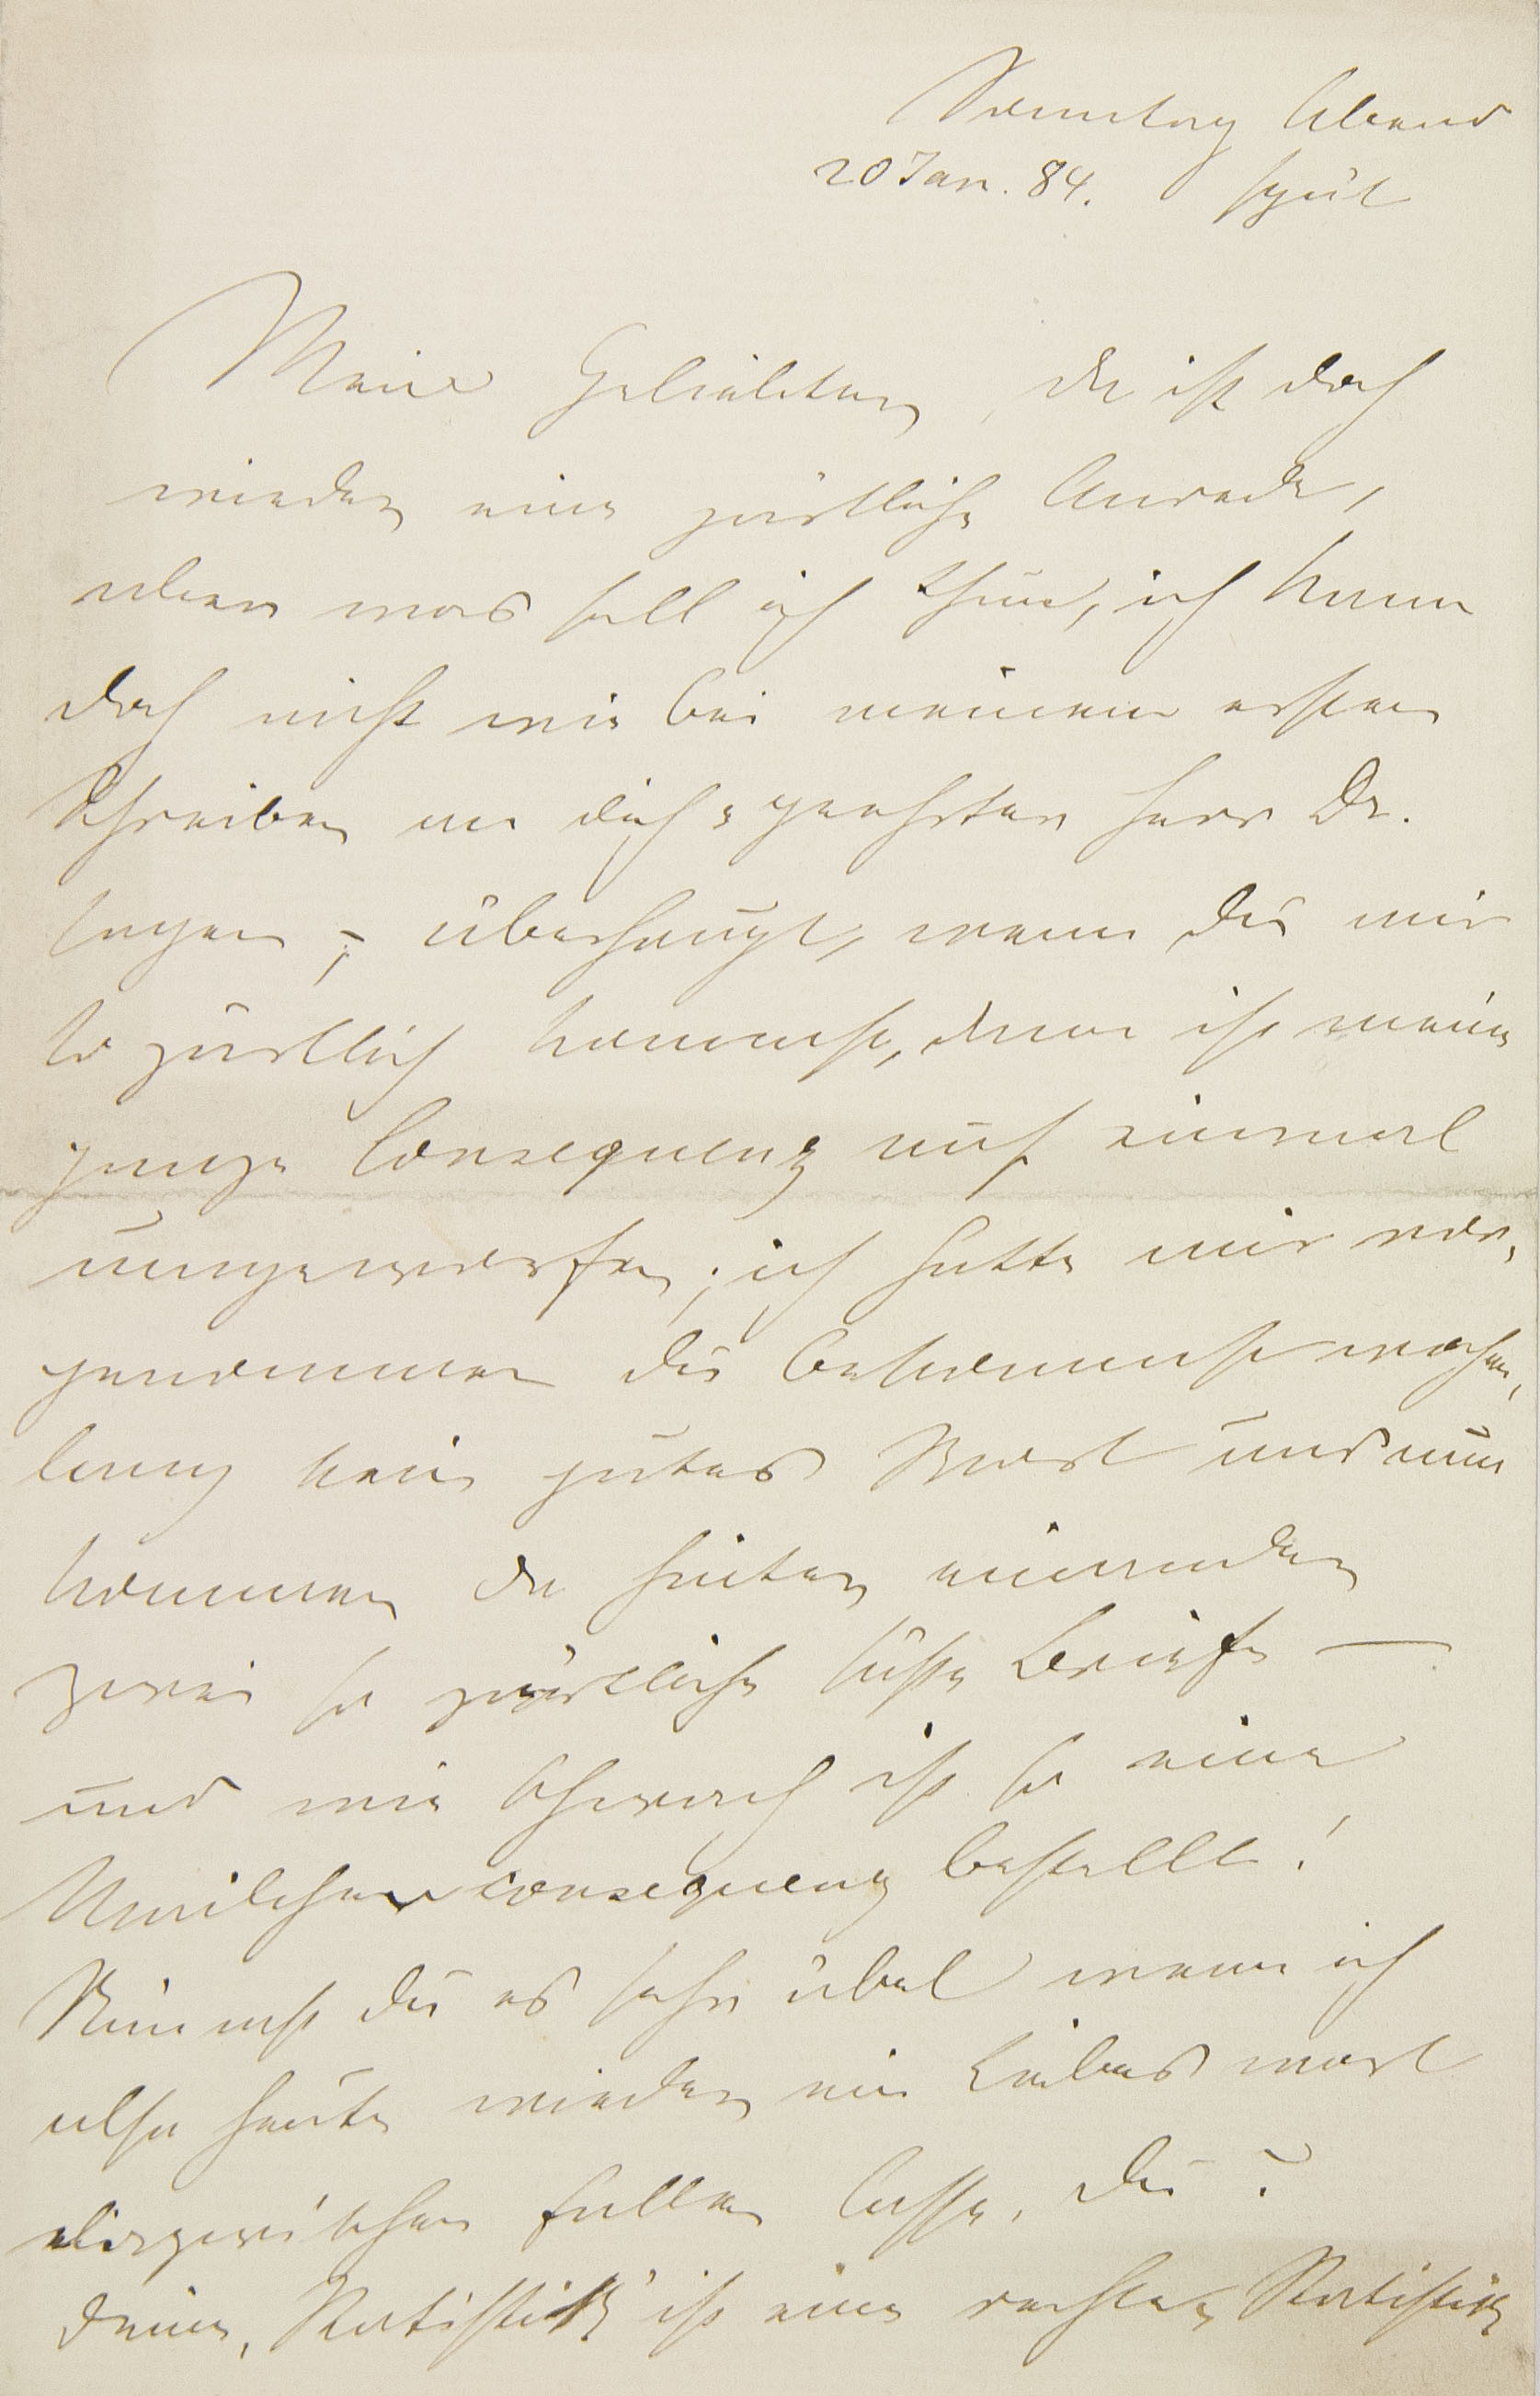 Sonntag Abend
20 Jan. 84. spät
Mein Geliebter, da ist doch
wieder eine zärtliche Anrede,
aber was soll ich thun, ich kann
doch nicht wie bei meinem ersten
Schreiben an dich „geehrter Herr Dr.
sagen; überhaupt, wenn Du mir
so zärtlich kommst, dann ist meine
ganze Consequenz auf einmal
umgeworfen; ich hatte mir vor,
genommen Du bekommst wochen,
lang kein gutes Wort und nun
kommen da hinter einander
zwei so zärtliche süße Briefe —
und wie schwach ist so eine
consequenz bestellt!
Nimmst Du es sehr übel wenn ich
also heute wieder ein Liebeswort
dazwischen fallen lasse, Du?
Deine „Statistik" ist eine rechte Statistik